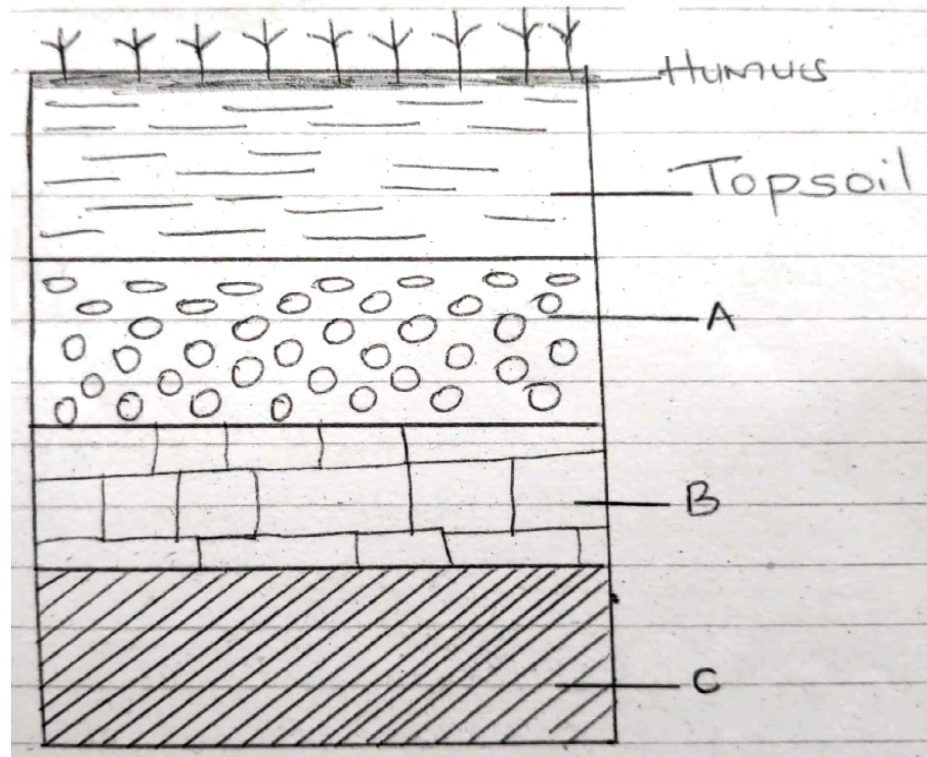 Humus
Topsoil
A
B
C